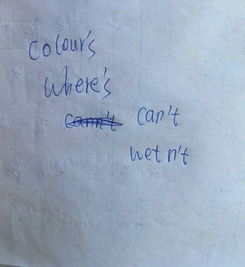 colour's
where's
can't
wet n't